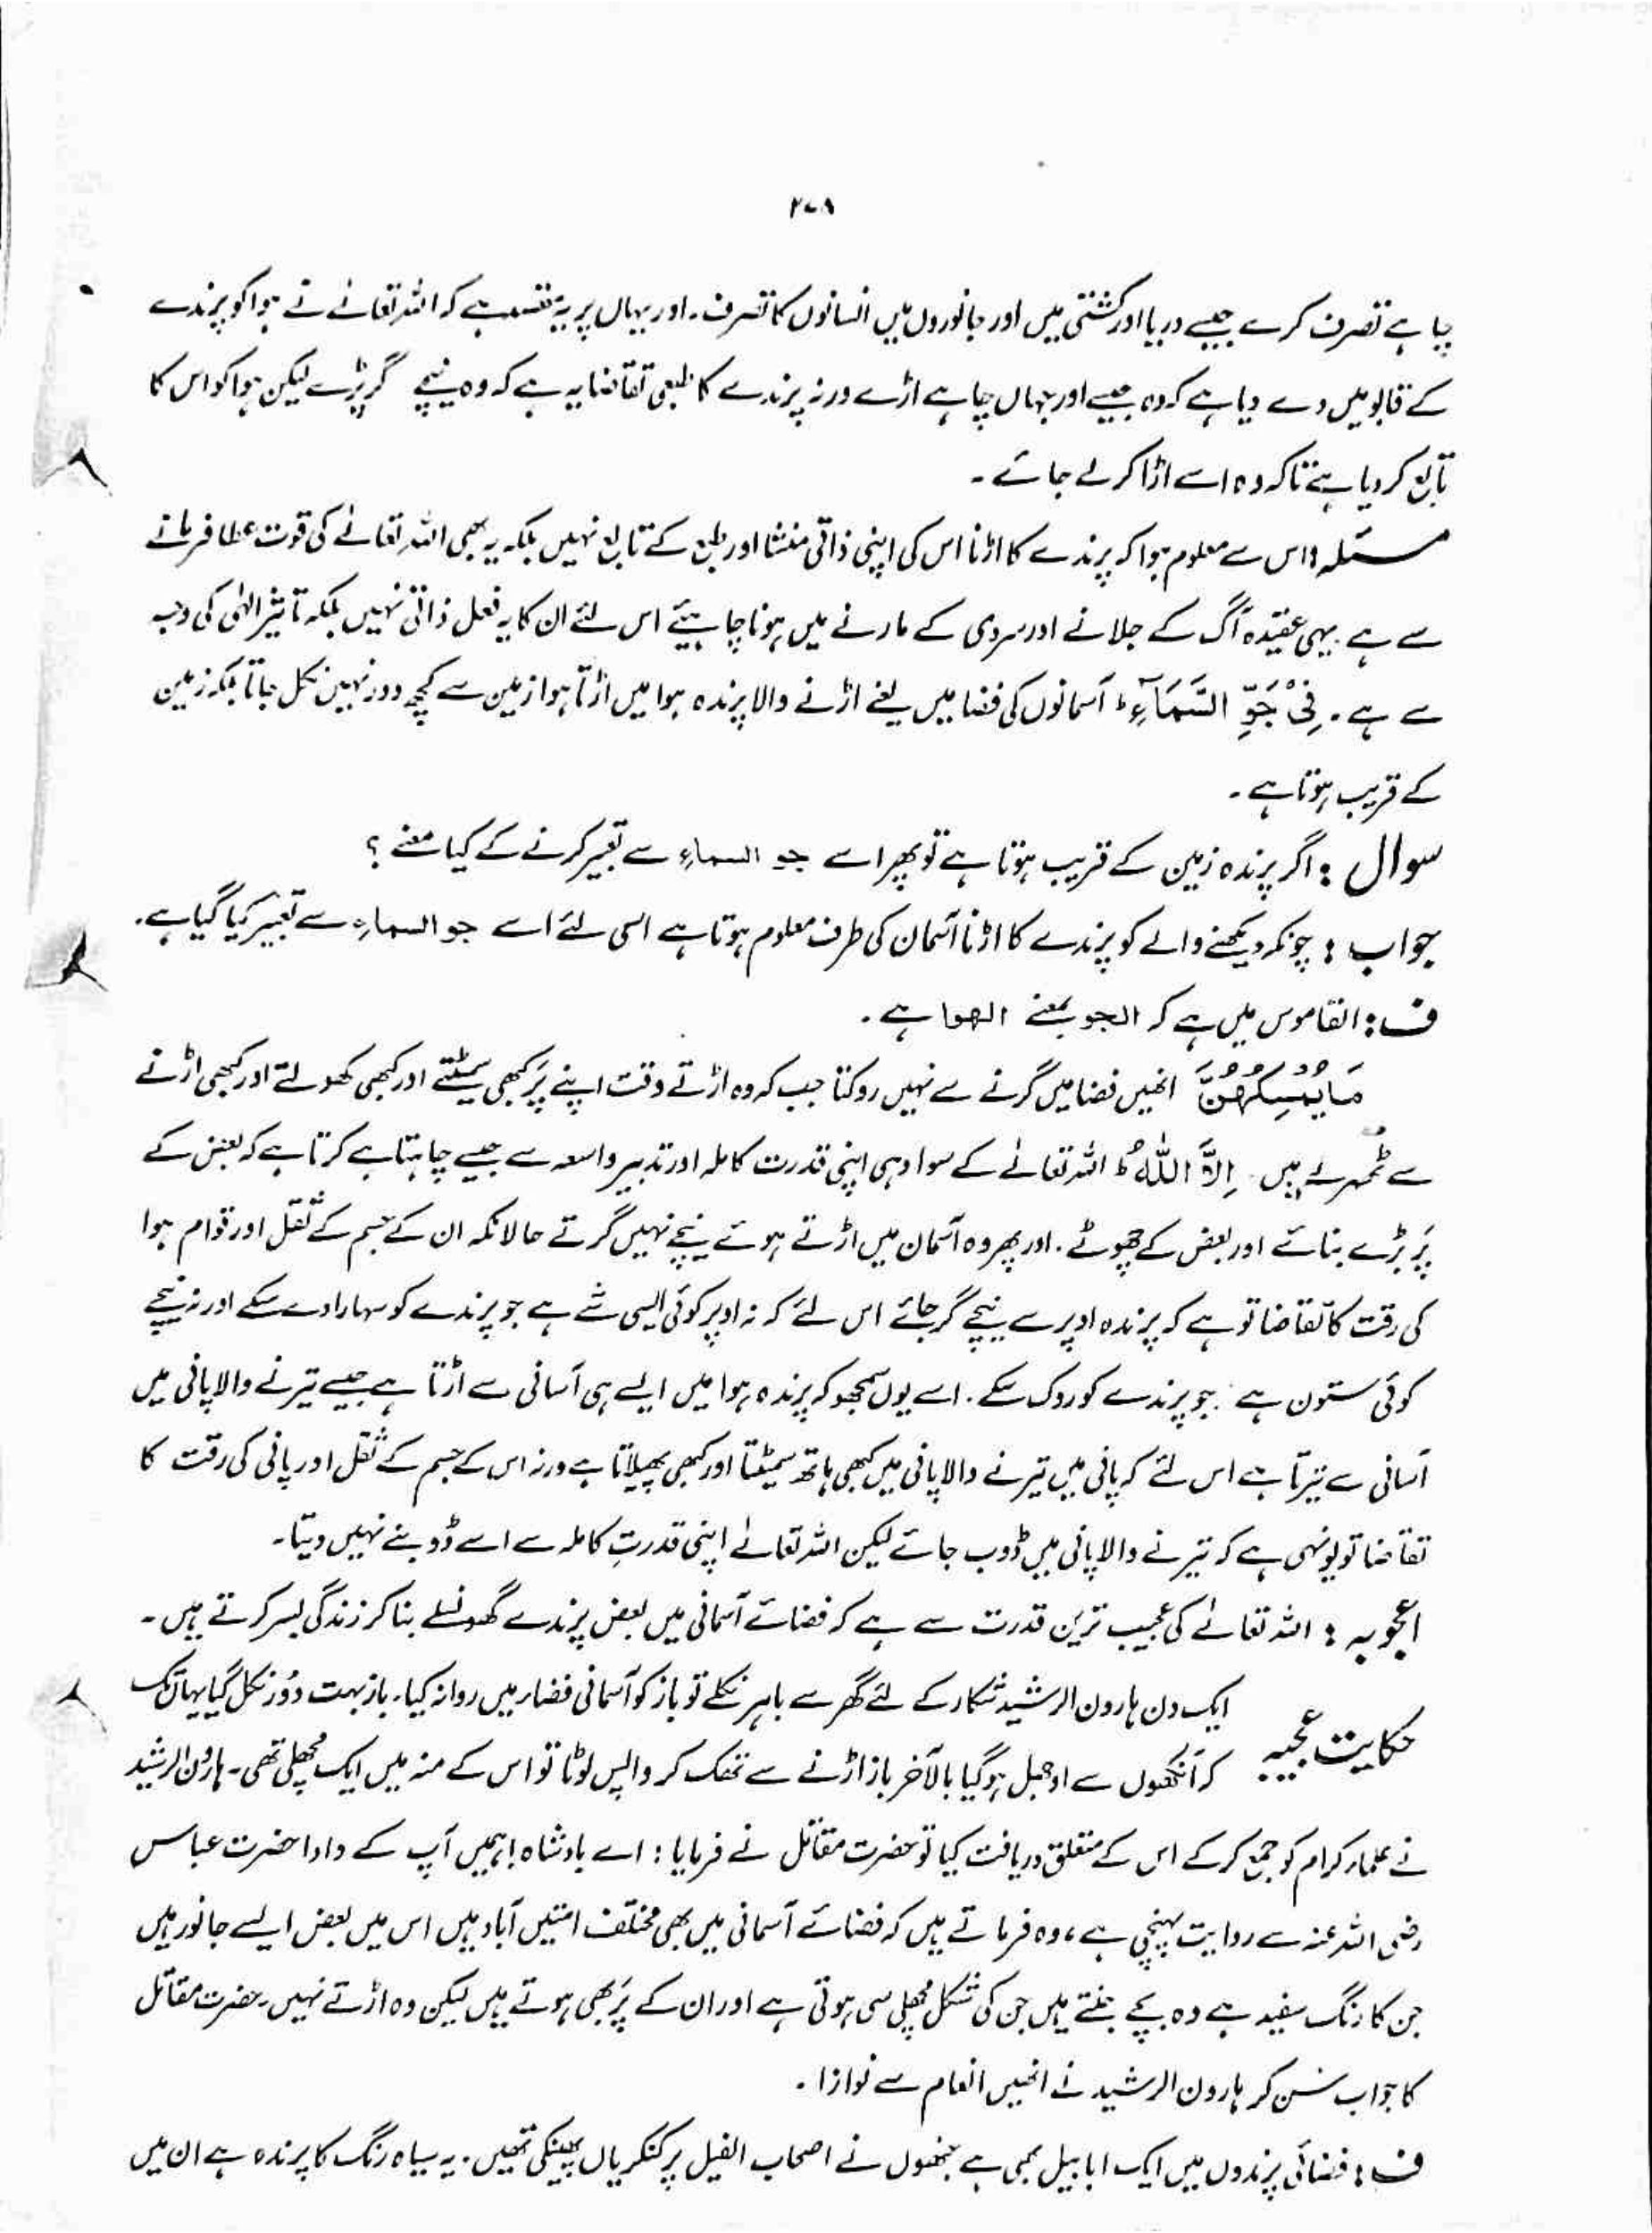 ۲۷۸
چاہے تصرف کرے جیسے دریا اور کشتی میں اور جانوروں میں انسانوں کا تصرف۔ اور یہاں پر یہ مقصد ہے کہ اللہ تعالےٰ نے ہوا کو پرندے
کے قابو میں دے دیا ہے کہ وہ جیسے اور جہاں چاہے اڑے ورنہ پرندے کا طبعی تقاضا یہ ہے کہ وہ نیچے گر پڑے لیکن ہوا کو اس کا
تابع کر دیا ہے تاکہ وہ اسے اڑا کر لے جائے ۔
مسئلہ : اس سے معلوم ہوا کہ پرندے کا اڑنا اس کی اپنی ذاتی منشا اور طبع کے تابع نہیں بلکہ یہ بھی اللہ تعالےٰ کی قوت عطا فرمانے
سے ہے ۔ یہی عقیدہ آگ کے جلانے اور سردی کے مارنے میں ہونا چاہیئے اس لئے ان کا یہ فعل ذاتی نہیں بلکہ تاثیر الہٰی کی وجہ
سے ہے ۔ فِیْ جَوِّ السَّمَآءِ ؕ آسمانوں کی فضا میں یعنے اڑنے والا پرندہ ہوا میں اڑتا ہوا زمین سے کچھ دور نہیں نکل جاتا بلکہ زمین
کے قریب ہوتا ہے ۔
سوال : اگر پرندہ زمین کے قریب ہوتا ہے تو پھر اسے جو السماء سے تعبیر کرنے کے کیا معنے ؟
جواب : چونکہ دیکھنے والے کو پرندے کا اڑنا آسمان کی طرف معلوم ہوتا ہے اسی لئے اسے جو السماء سے تعبیر کیا گیا ہے ۔
ف : القاموس میں ہے کہ الجو بمعنے الھوا ہے ۔
مَا یُمْسِکُھُنَّ انھیں فضا میں گرنے سے نہیں روکتا جب کہ وہ اڑتے وقت اپنے پَر کبھی سمیٹتے اور کبھی کھولتے اور کبھی اڑنے
سے ٹھہرے ہیں ۔ اِلَّا اللّٰہُ ؕ اللہ تعالےٰ کے سوا وہی اپنی قدرت کاملہ اور تدبیر واسعہ سے جیسے چاہتا ہے کرتا ہے کہ بعض کے
پَر بڑے بنائے اور بعض کے چھوٹے ۔ اور پھر وہ آسمان میں اڑتے ہوئے نیچے نہیں گرتے حالانکہ ان کے جسم کے ثقل اور قوام ہوا
کی رقت کا تقاضا تو ہے کہ پرندہ اوپر سے نیچے گر جائے اس لئے کہ نہ اوپر کوئی ایسی شے ہے جو پرندے کو سہارا دے سکے اور نہ نیچے
کوئی ستون ہے جو پرندے کو روک سکے ۔ اسے یوں سمجھو کہ پرندہ ہوا میں ایسے ہی آسانی سے اڑتا ہے جیسے تیرنے والا پانی میں
آسانی سے تیرتا ہے اس لئے کہ پانی میں تیرنے والا پانی میں کبھی ہاتھ سمیٹتا اور کبھی پھیلاتا ہے ورنہ اس کے جسم کے ثقل اور پانی کی رقت کا
تقاضا تو یونہی ہے کہ تیرنے والا پانی میں ڈوب جائے لیکن اللہ تعالےٰ اپنی قدرتِ کاملہ سے اسے ڈوبنے نہیں دیتا ۔
اعجوبہ : اللہ تعالےٰ کی عجیب ترین قدرت سے ہے کہ فضائے آسمانی میں بعض پرندے گھونسلے بنا کر زندگی بسر کرتے ہیں ۔
حکایت عجیبہ ایک دن ہارون الرشید شکار کے لئے گھر سے باہر نکلے تو باز کو آسمانی فضاء میں روانہ کیا ۔ باز بہت دُور نکل گیا یہاں تک
کہ آنکھوں سے اوجھل ہو گیا بالآخر باز اڑنے سے تھک کر واپس لوٹا تو اس کے منہ میں ایک مچھلی تھی ۔ ہارون الرشید
نے علماء کرام کو جمع کر کے اس کے متعلق دریافت کیا تو حضرت مقاتل نے فرمایا : اے بادشاہ ! ہمیں آپ کے دادا حضرت عباس
رضی اللہ عنہ سے روایت پہنچی ہے ، وہ فرماتے ہیں کہ فضائے آسمانی میں بھی مختلف امتیں آباد ہیں اس میں بعض ایسے جانور ہیں
جن کا رنگ سفید ہے وہ بچے جنتے ہیں جن کی شکل مچھلی سی ہوتی ہے اور ان کے پَر بھی ہوتے ہیں لیکن وہ اڑتے نہیں ۔ حضرت مقاتل
کا جواب سن کر ہارون الرشید نے انھیں انعام سے نوازا ۔
ف : فضائی پرندوں میں ایک ابابیل بھی ہے جنھوں نے اصحاب الفیل پر کنکریاں پھینکی تھیں ۔ یہ سیاہ رنگ کا پرندہ ہے ان میں